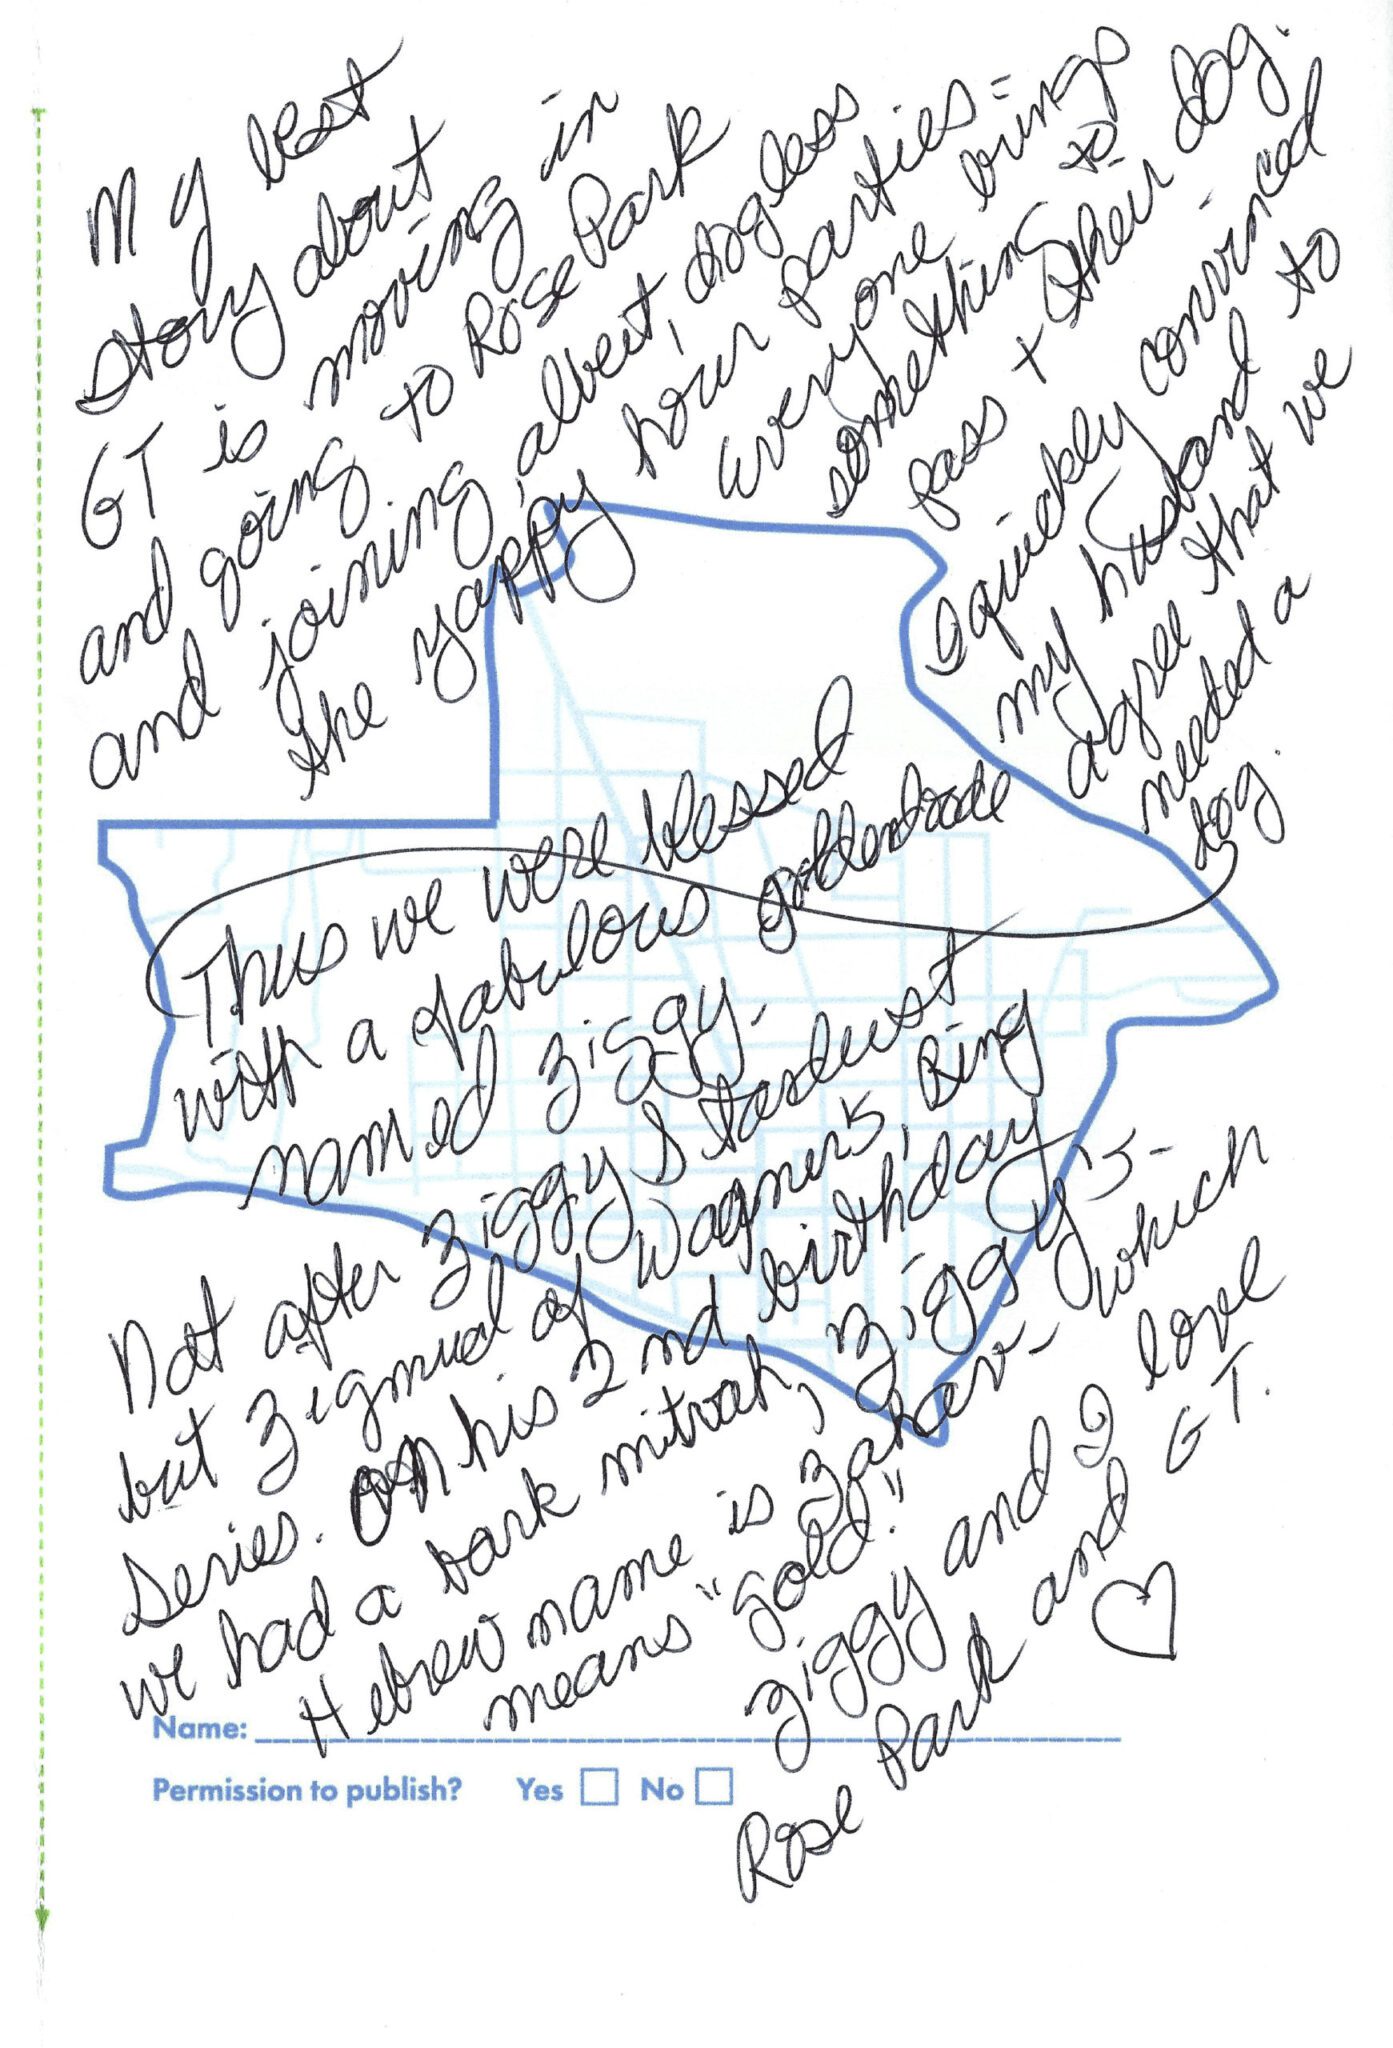 My best
story about
GT is moving in
and going to Rose Park
and joining, albeit, dogless
the yappy hour parties =
everyone brings
something to
pass + their dog.
I quickly convinced
my husband to
agree that we
needed a
dog.
Thus we were blessed
with a fabulous goldendoodle
named Ziggy.
Not after Ziggy Stardust
but Zigmud of Wagner's Ring
series. On his 2nd birthday
we had a bark mitvah, Ziggy's
Hebrew name is Zahav - which
means "gold."
Ziggy and I love
Rose Park and GT.
Name:
Permission to publish? Yes No